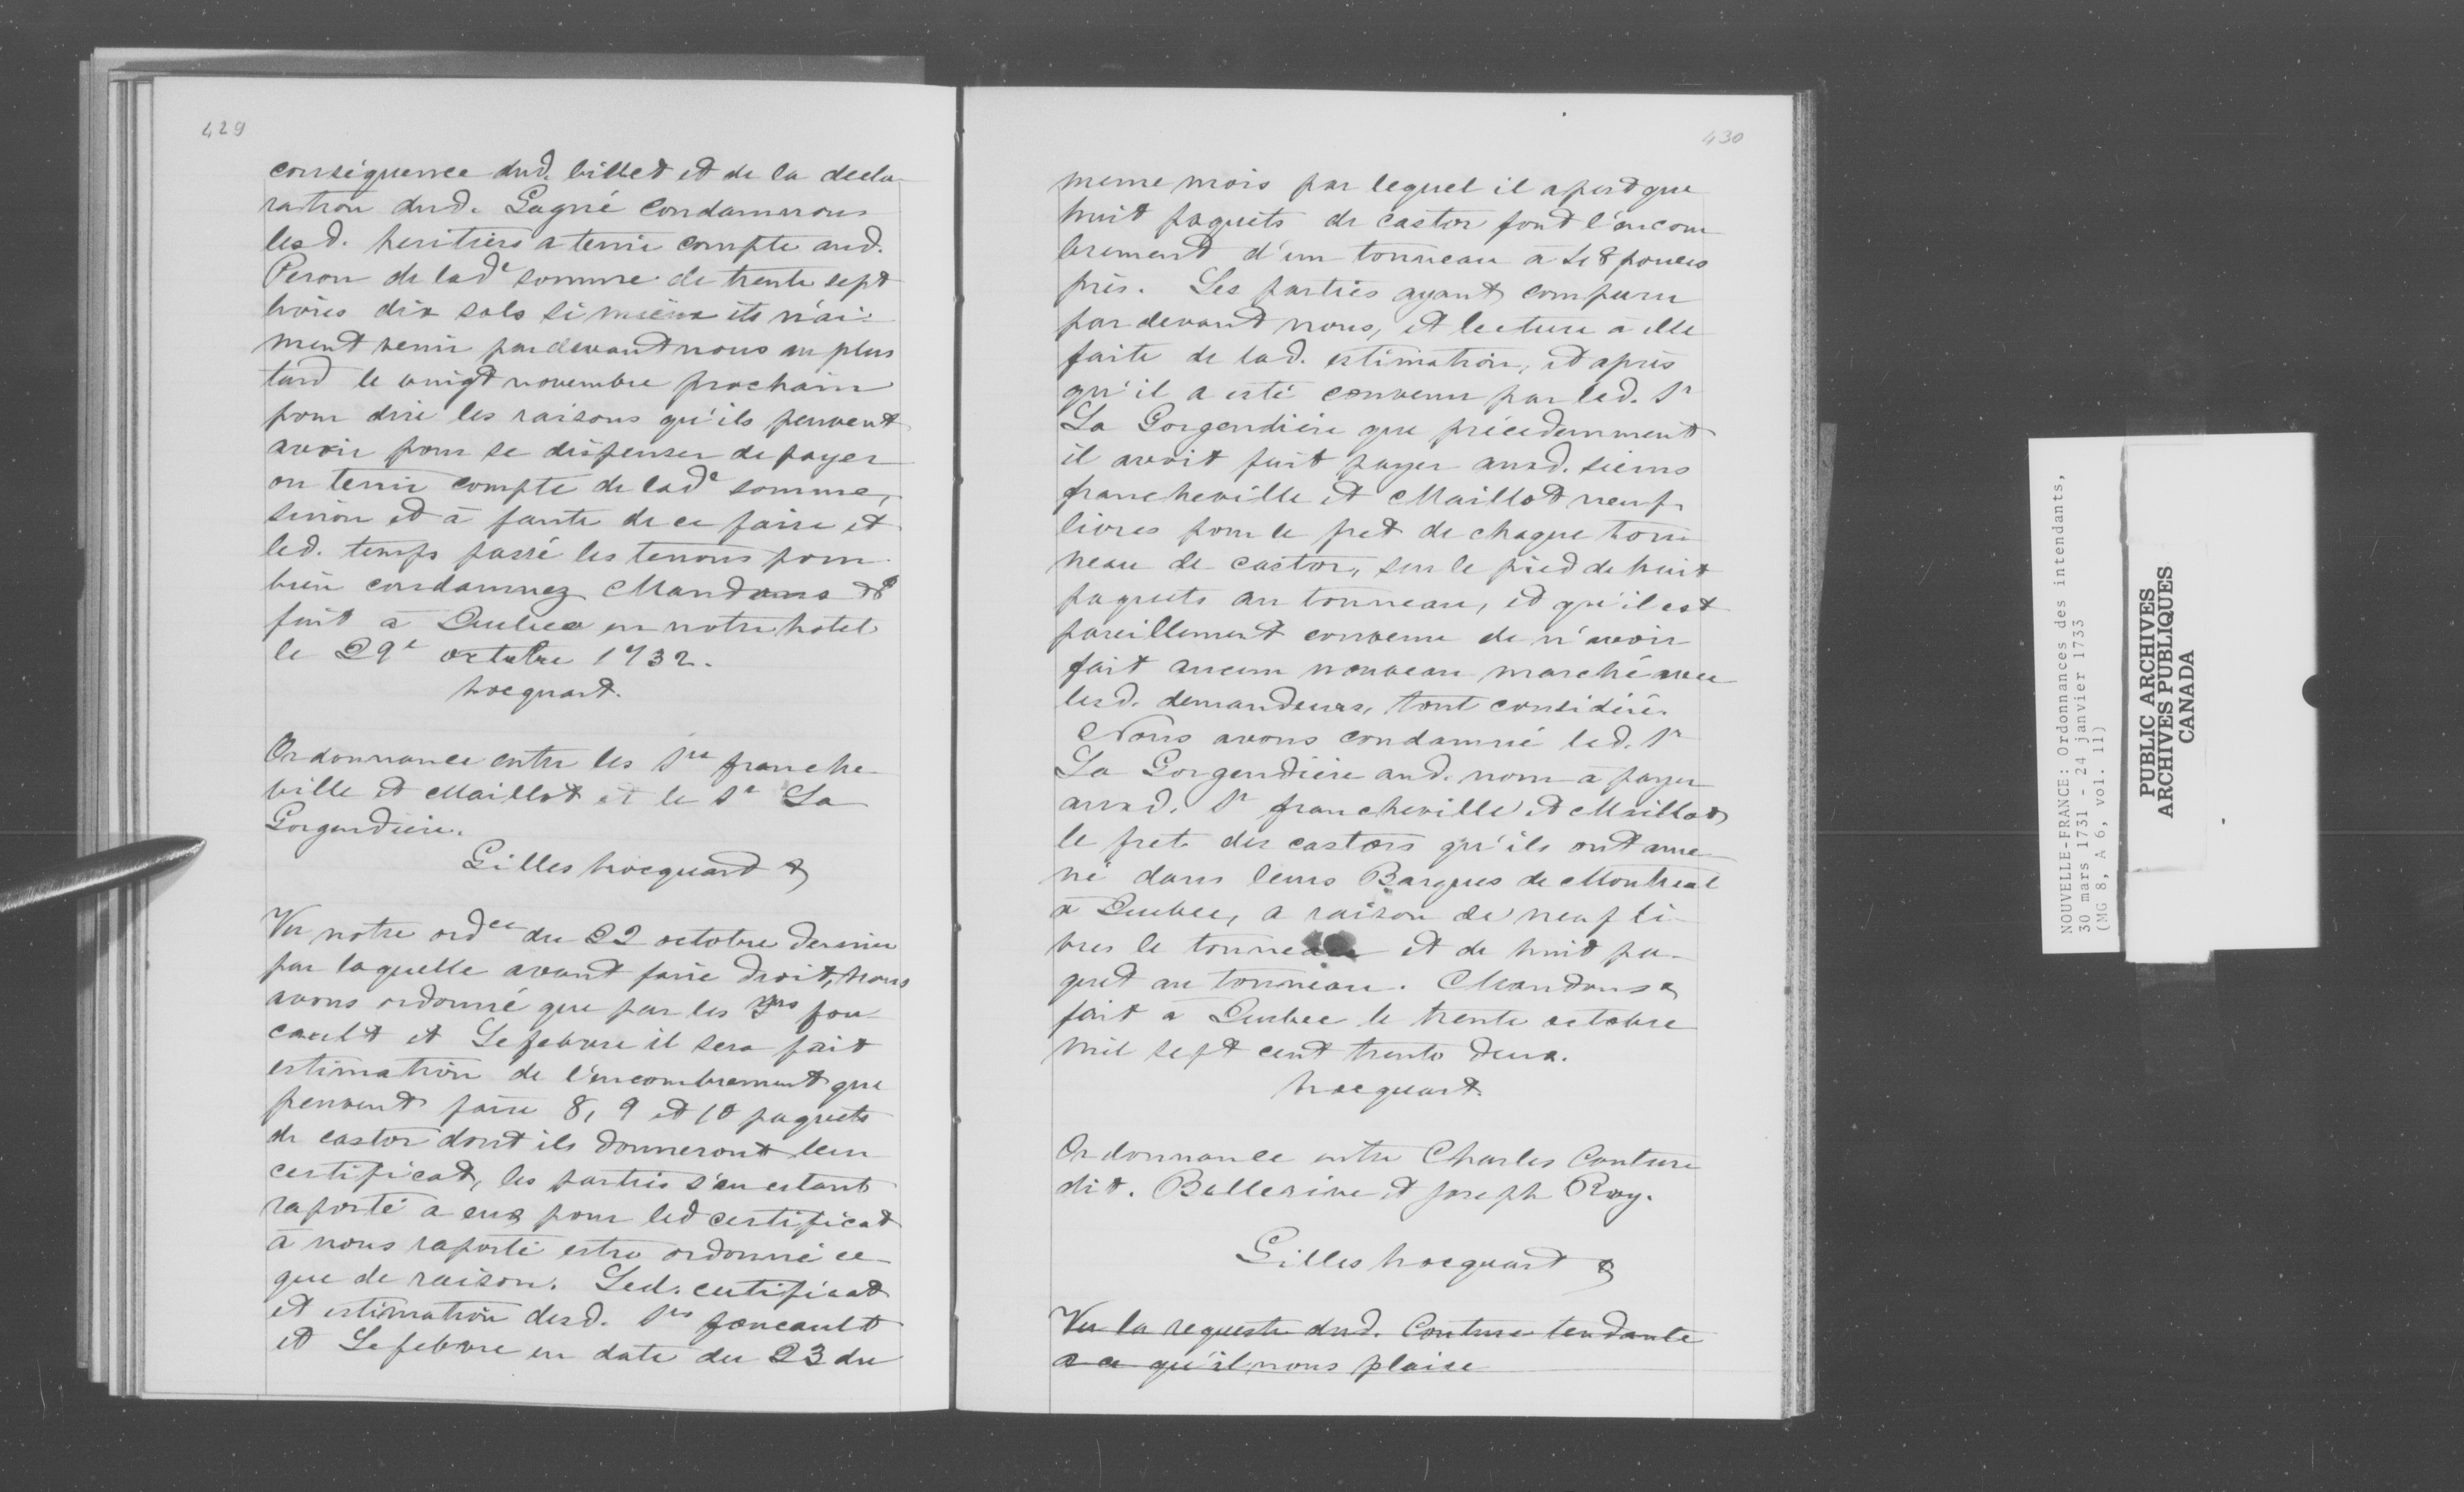 429
conséquence dud. billet et de la decla-
ration dud. Gagné condamnons
lesd. heritiers a tenir compte aud.
Peron de lad.e somme de trente sept
livres dix sols si mieux ils n'ai-
ment venir pardevant nous au plus
tard le vingt novembre prochain
pour dire les raisons qu'ils peuvent
avoir pour se dispenser de payer
ou tenir compte de lad.e somme,
sinon et à faute de ce faire et
led. temps passé les tenons pour
bien condamnez Mandons &
fait à Quebec en notre hotel
le 29e octobre 1732.
hocquart.
Ordonnance entre les Srs franche-
ville et Maillot et le Sr La
Gorgendière.
Gilles hocquart &
Vu notre ordce du 22 octobre dernier
par laquelle avant faire droit, nous
avons ordonné que par les Srs fou-
cault et Lefebvre il sera fait
estimation de l'encombrement que
peuvent faire 8, 9 et 10 paquets
de castor dont ils donneront leur
certificat, les parties s'en estant
raporté a eux pour led certificat
à nous raporté estre ordonné ce
que de raison. Led. certificat
et estimation desd. Srs foucault
et Lefebvre en date du 23 du
430
meme mois par lequel il apert que
huit paquets de castor font l'encom
brement d'un tonneau à 8 pouces
près. Les parties ayant comparu
par devant nous, et lecture à elle
faite de lad. estimation, et après
qu'il a esté convenu par led. Sr
La Gorgendière que précedemment
il avoit fait payer ausd. sieurs
francheville et Maillot neuf
livres pour le fret de chaque ton-
neau de castor, sur le pied de huit
paquets au tonneau, et qu'il est
pareillement convenu de n'avoir
fait aucun nouveau marché avec
lesd. demandeurs, tout considéré.
Nous avons condamné led. Sr
La Gorgendière aud. nom à payer
ausd. Sr francheville et Maillot
le fret des castors qu'ils ont ame-
né dans leurs Barques de Montreal
à Quebec, a raison de neuf li-
vres le tonneau et de huit pa-
quet au tonneau. Mandons &
fait à Quebec le trente octobre
mil sept cent trente deux.
hocquart
Ordonnance entre Charles Couture
dit. Bellerive et Joseph Roy.
Gilles hocquart &
Vu la requeste dud. Couture tendante
a ce qu'il nous plaise
NOUVELLE-FRANCE: Ordonnances des intendants,
30 mars 1731 - 24 janvier 1733
(MG 8, A 6, vol. 11)
PUBLIC ARCHIVES
ARCHIVES PUBLIQUES
CANADA